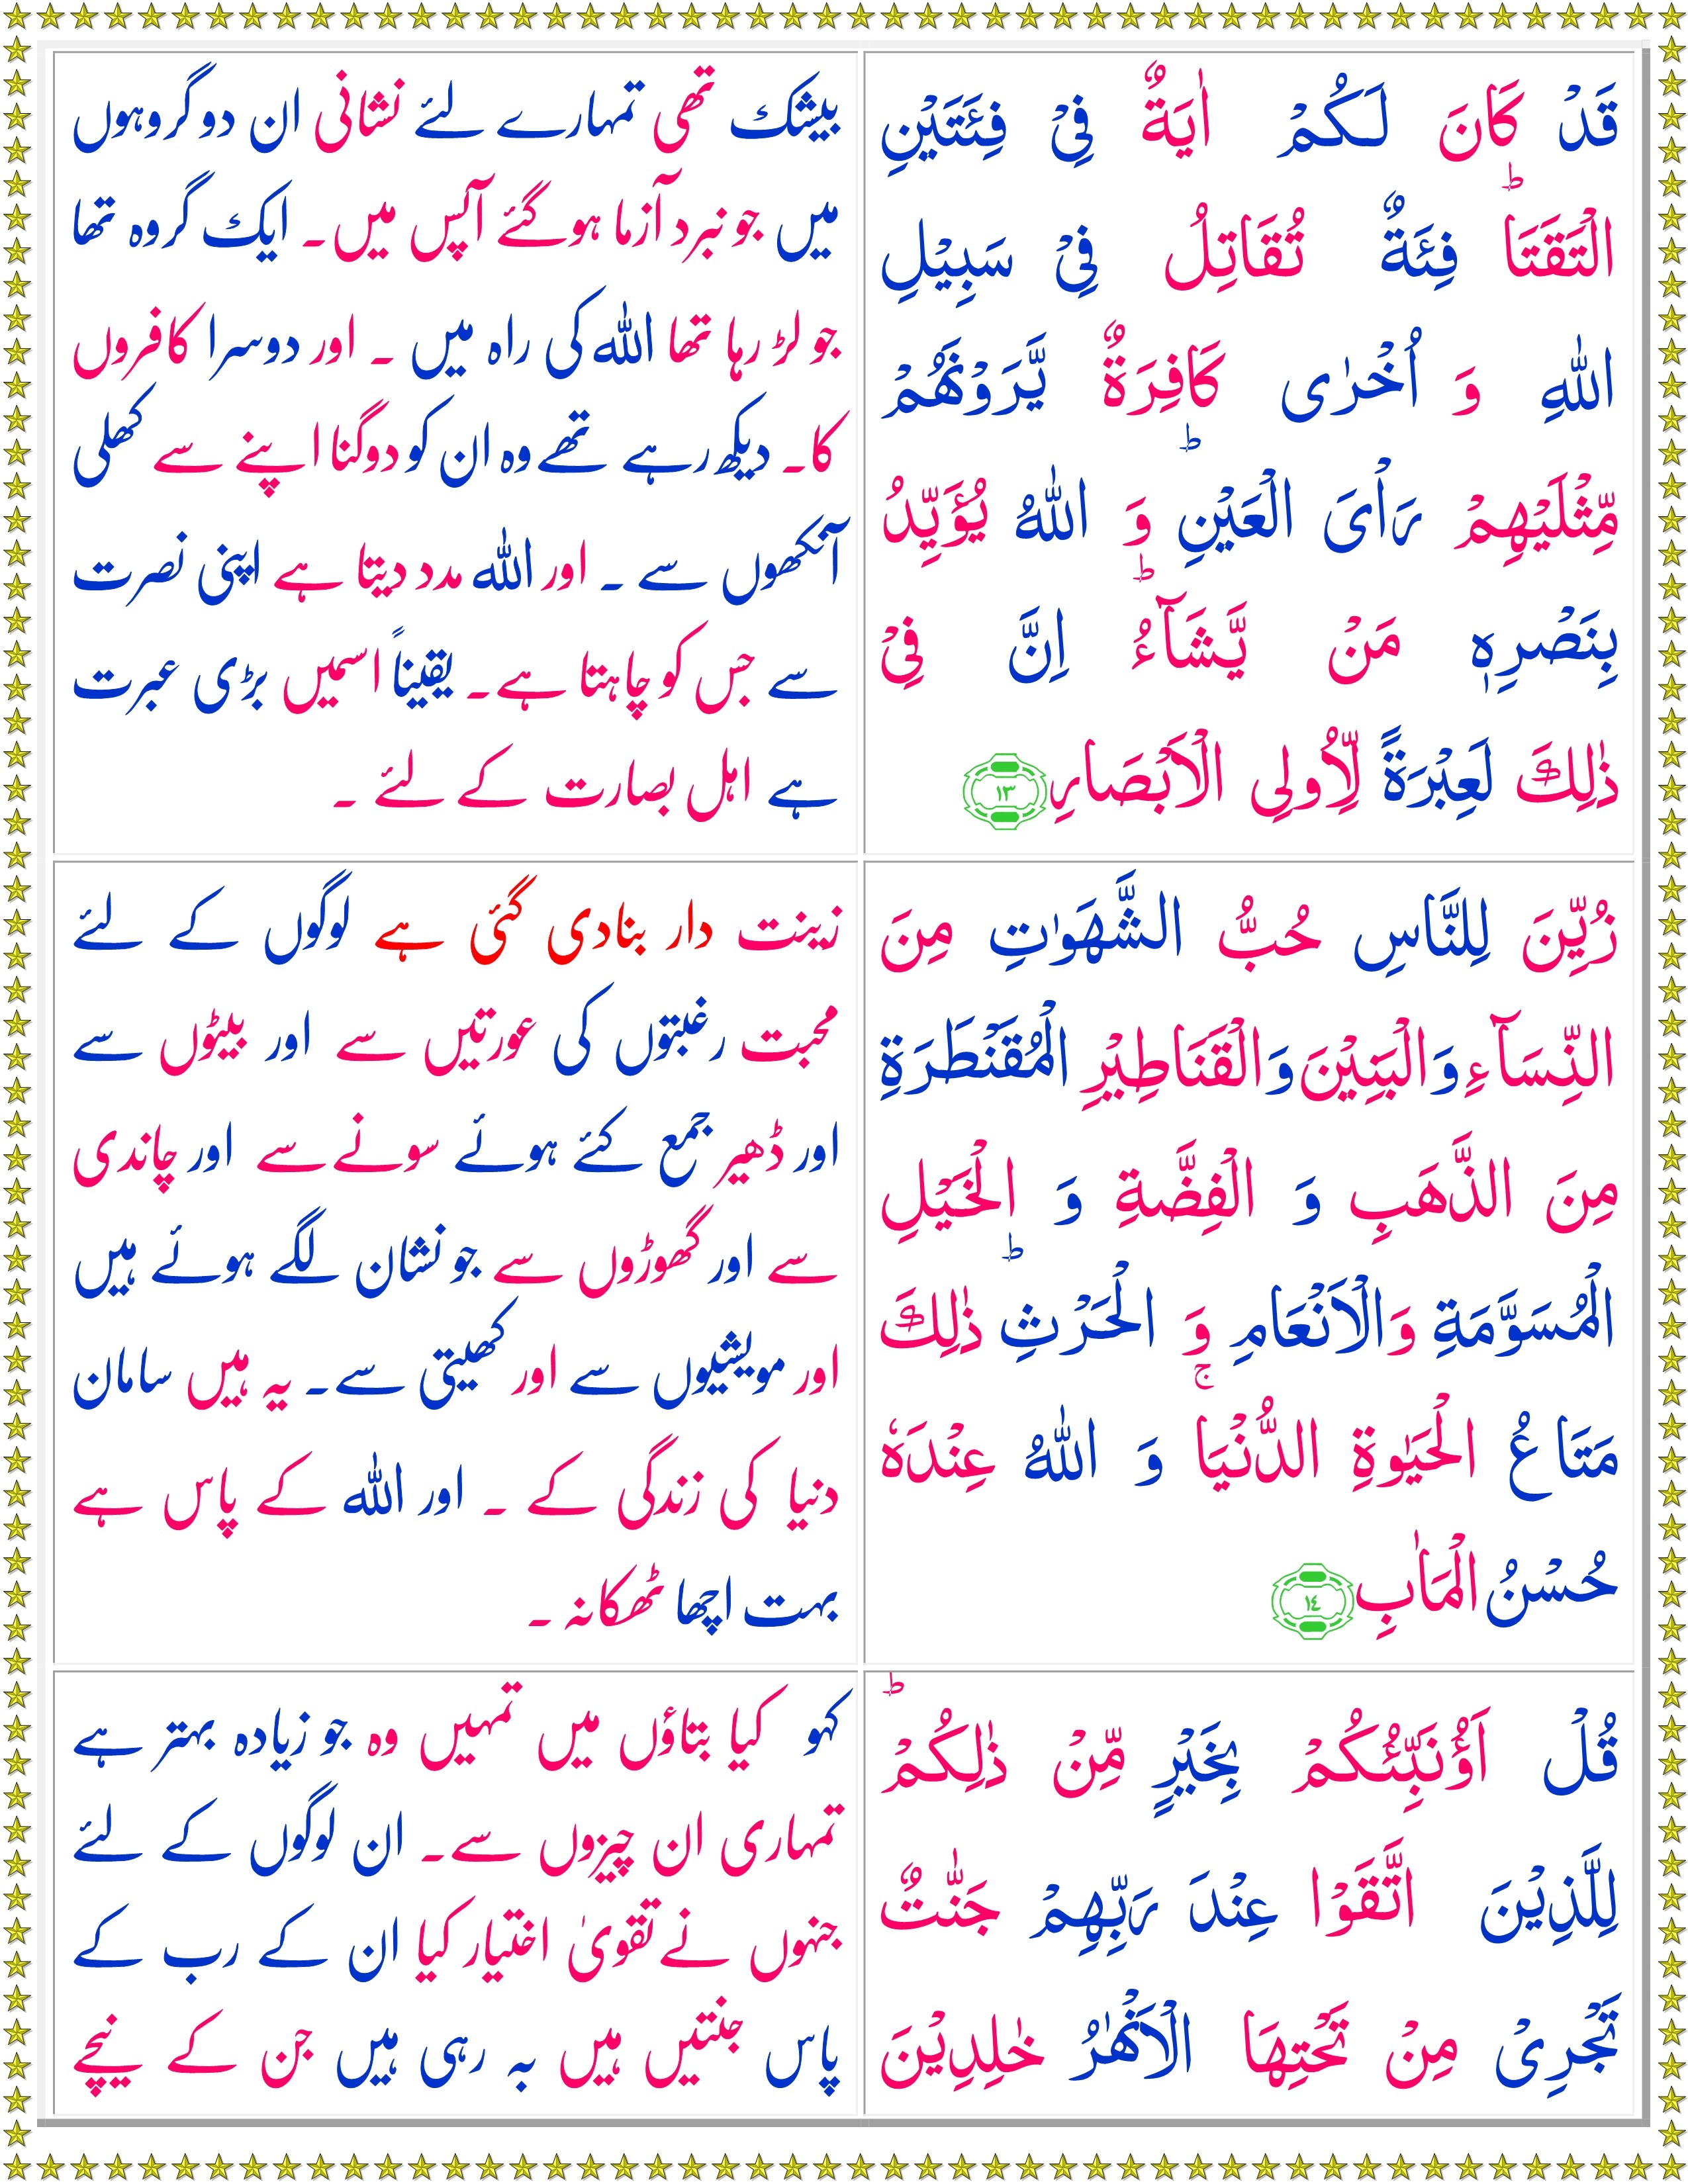 قَدۡ كَانَ لَـكُمۡ اٰيَةٌ فِىۡ فِئَتَيۡنِ
الۡتَقَتَا ؕ فِئَةٌ تُقَاتِلُ فِىۡ سَبِيۡلِ
اللّٰهِ وَ اُخۡرٰى كَافِرَةٌ يَّرَوۡنَهُمۡ
مِّثۡلَيۡهِمۡ رَاۡىَ الۡعَيۡنِ ؕ وَ اللّٰهُ يُؤَيِّدُ
بِنَصۡرِهٖ مَنۡ يَّشَآءُ ؕ اِنَّ فِىۡ
ذٰلِكَ لَعِبۡرَةً لِّاُولِى الۡاَبۡصَارِ ۱۳
بیشک تھی تمہارے لئے نشانی ان دو گروہوں
میں جو نبرد آزما ہو گئے آپس میں۔ ایک گروہ تھا
جو لڑ رہا تھا اللہ کی راہ میں ۔ اور دوسرا کافروں
کا۔ دیکھ رہے تھے وہ ان کو دوگنا اپنے سے کھلی
آنکھوں سے ۔ اور اللہ مدد دیتا ہے اپنی نصرت
سے جس کو چاہتا ہے۔ یقیناً اسمیں بڑی عبرت
ہے اہل بصارت کے لئے ۔
زُيِّنَ لِلنَّاسِ حُبُّ الشَّهَوٰتِ مِنَ
النِّسَآءِ وَالۡبَنِيۡنَ وَالۡقَنَاطِيۡرِ الۡمُقَنۡطَرَةِ
مِنَ الذَّهَبِ وَ الۡفِضَّةِ وَ الۡخَيۡلِ
الۡمُسَوَّمَةِ وَالۡاَنۡعَامِ وَ الۡحَرۡثِ ؕ ذٰلِكَ
مَتَاعُ الۡحَيٰوةِ الدُّنۡيَا ۚ وَ اللّٰهُ عِنۡدَهٗ
حُسۡنُ الۡمَاٰبِ ۱٤
زینت دار بنادی گئی ہے لوگوں کے لئے
محبت رغبتوں کی عورتیں سے اور بیٹوں سے
اور ڈھیر جمع کئے ہوئے سونے سے اور چاندی
سے اور گھوڑوں سے جو نشان لگے ہوئے ہیں
اور مویشیوں سے اور کھیتی سے۔ یہ ہیں سامان
دنیا کی زندگی کے ۔ اور اللہ کے پاس ہے
بہت اچھا ٹھکانہ ۔
قُلۡ اَؤُنَبِّئُكُمۡ بِخَيۡرٍ مِّنۡ ذٰلِكُمۡ ؕ
لِلَّذِيۡنَ اتَّقَوۡا عِنۡدَ رَبِّهِمۡ جَنّٰتٌ
تَجۡرِىۡ مِنۡ تَحۡتِهَا الۡاَنۡهٰرُ خٰلِدِيۡنَ
کہو کیا بتاؤں میں تمہیں وہ جو زیادہ بہتر ہے
تمہاری ان چیزوں سے۔ ان لوگوں کے لئے
جنہوں نے تقویٰ اختیار کیا ان کے رب کے
پاس جنتیں ہیں بہ رہی ہیں جن کے نیچے